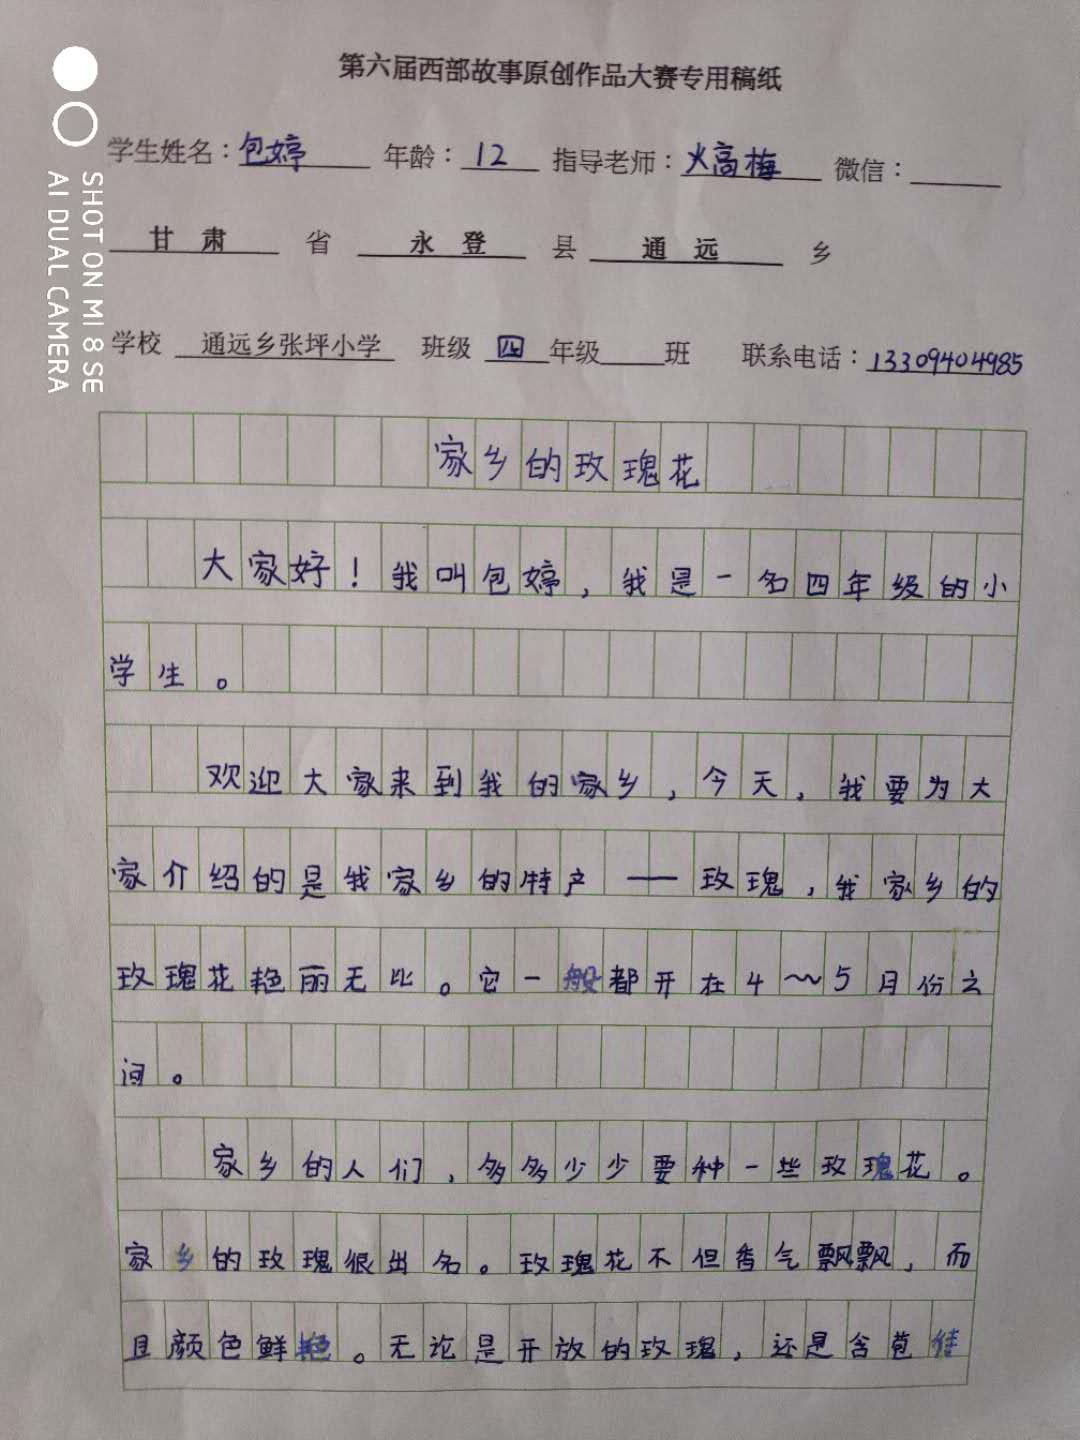 第六届西部故事原创作品大赛专用稿纸
学生姓名：包婷 年龄：12 指导老师：火高梅 微信：
甘肃 省 永登 县 通远 乡
学校 通远乡张坪小学 班级 四年级 班 联系电话：13309404985
家乡的玫瑰花
大家好！我叫包婷，我是一名四年级的小
学生。
欢迎大家来到我的家乡，今天，我要为大
家介绍的是我家乡的特产——玫瑰，我家乡的
玫瑰花艳丽无比。它一般都开在4～5月份之
间。
家乡的人们，多多少少要种一些玫瑰花。
家乡的玫瑰很出名。玫瑰花不但香气飘飘，而
且颜色鲜艳。无论是开放的玫瑰，还是含苞待
SHOT ON MI 8 SE
AI DUAL CAMERA